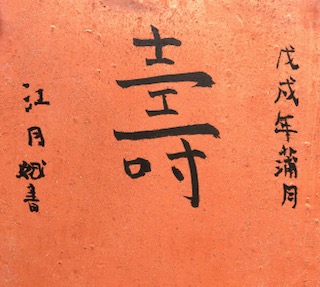 戊戌年蒲月
壽
江月斌書